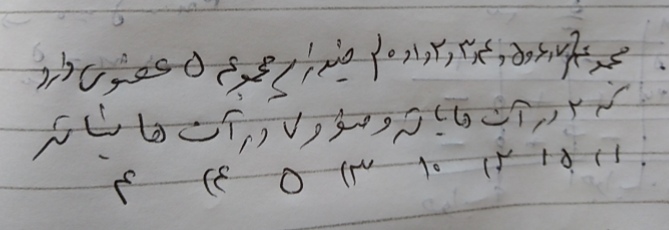 مجموعه {۰,۱,۲,۳,۴,۵,۶,۷} چند زیرمجموعه ۵ عضوی دارد
که ۲ در آن ها باشد و صفر و ۷ در آن ها نباشد
۱) ۱۵ ۲) ۱۰ ۳) ۵ ۴) ۴